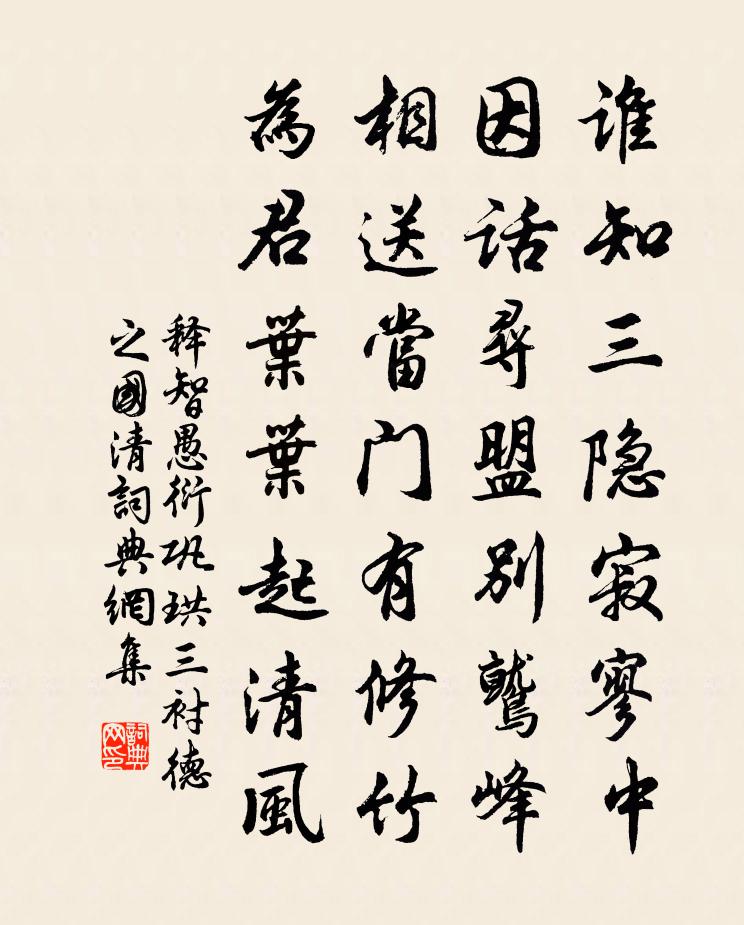 谁知三隐寂寥中
因话尋盟别鷲峰
相送當门有修竹
為君葉葉起清風
释智愚衍巩珙三衬德
之國清詞典網集
詞典网印